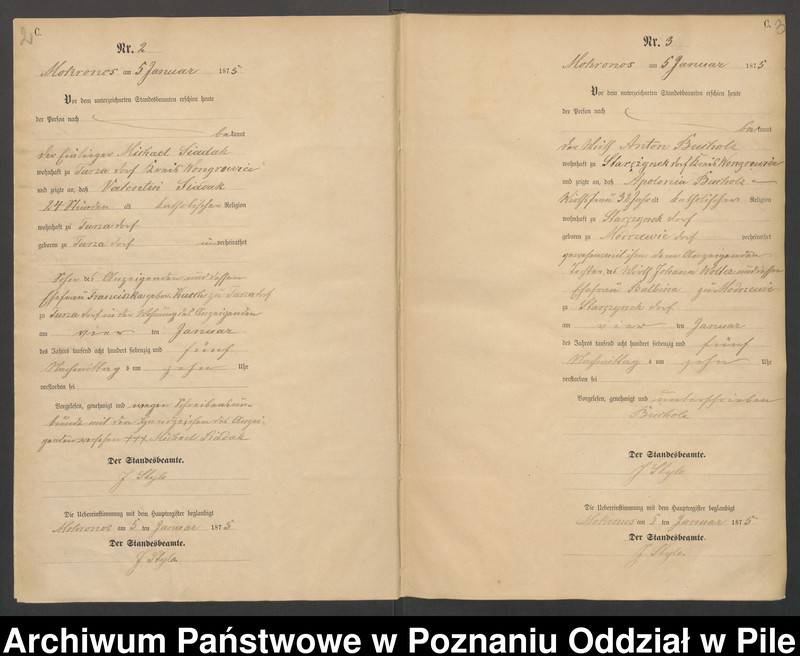 2
C.
Nr. 2
Mokronos am 5 Januar 1875
Vor dem unterzeichneten Standesbeamten erschien heute
der Person nach
bekannt
der Einlieger Michael Siadak
wohnhaft zu Turza dorf Kreis Wongrowiec
und zeigte an, daß Valentin Siadak
24 Stunden a katholischer Religion
wohnhaft zu Turza dorf
geboren zu Turza dorf unverheirathet
Sohn des Anzeigenden und dessen
Ehefrau Franciska geboren zu Turza dorf
zu Turza dorf in der Wohnung des Anzeigenden
am vier ten Januar
des Jahres tausend acht hundert siebenzig und fünf
Nachmittag s um zehn Uhr
verstorben sei
Vorgelesen, genehmigt und wegen Schreibensun-
kunde mit den Handzeichen des Anzei-
genden versehen +++ Michael Siadak
Der Standesbeamte.
J Styla
Die Uebereinstimmung mit dem Hauptregister beglaubigt
Mokronos am 5 ten Januar 1875
Der Standesbeamte.
J Styla
C. 3
Nr. 3
Mokronos am 5 Januar 1875
Vor dem unterzeichneten Standesbeamten erschien heute
der Person nach
bekannt
der Wirth Anton Burholz
wohnhaft zu dorf Kreis Wongrowiec
und zeigte an, daß Apolonia Burholz
Wirthsfrau 32 Jahr alt katholischer Religion
wohnhaft zu dorf
geboren zu dorf verheirathet
gewesen mit ihm dem Anzeigenden
Tochter des Wirth Johann und dessen
Ehefrau Balbina zu
zu dorf
am vier ten Januar
des Jahres tausend acht hundert siebenzig und fünf
Nachmittag s um zehn Uhr
verstorben sei
Vorgelesen, genehmigt und unterschrieben
Burholz
Der Standesbeamte.
J Styla
Die Uebereinstimmung mit dem Hauptregister beglaubigt
Mokronos am 5 ten Januar 1875
Der Standesbeamte.
J Styla
Archiwum Państwowe w Poznaniu Oddział w Pile